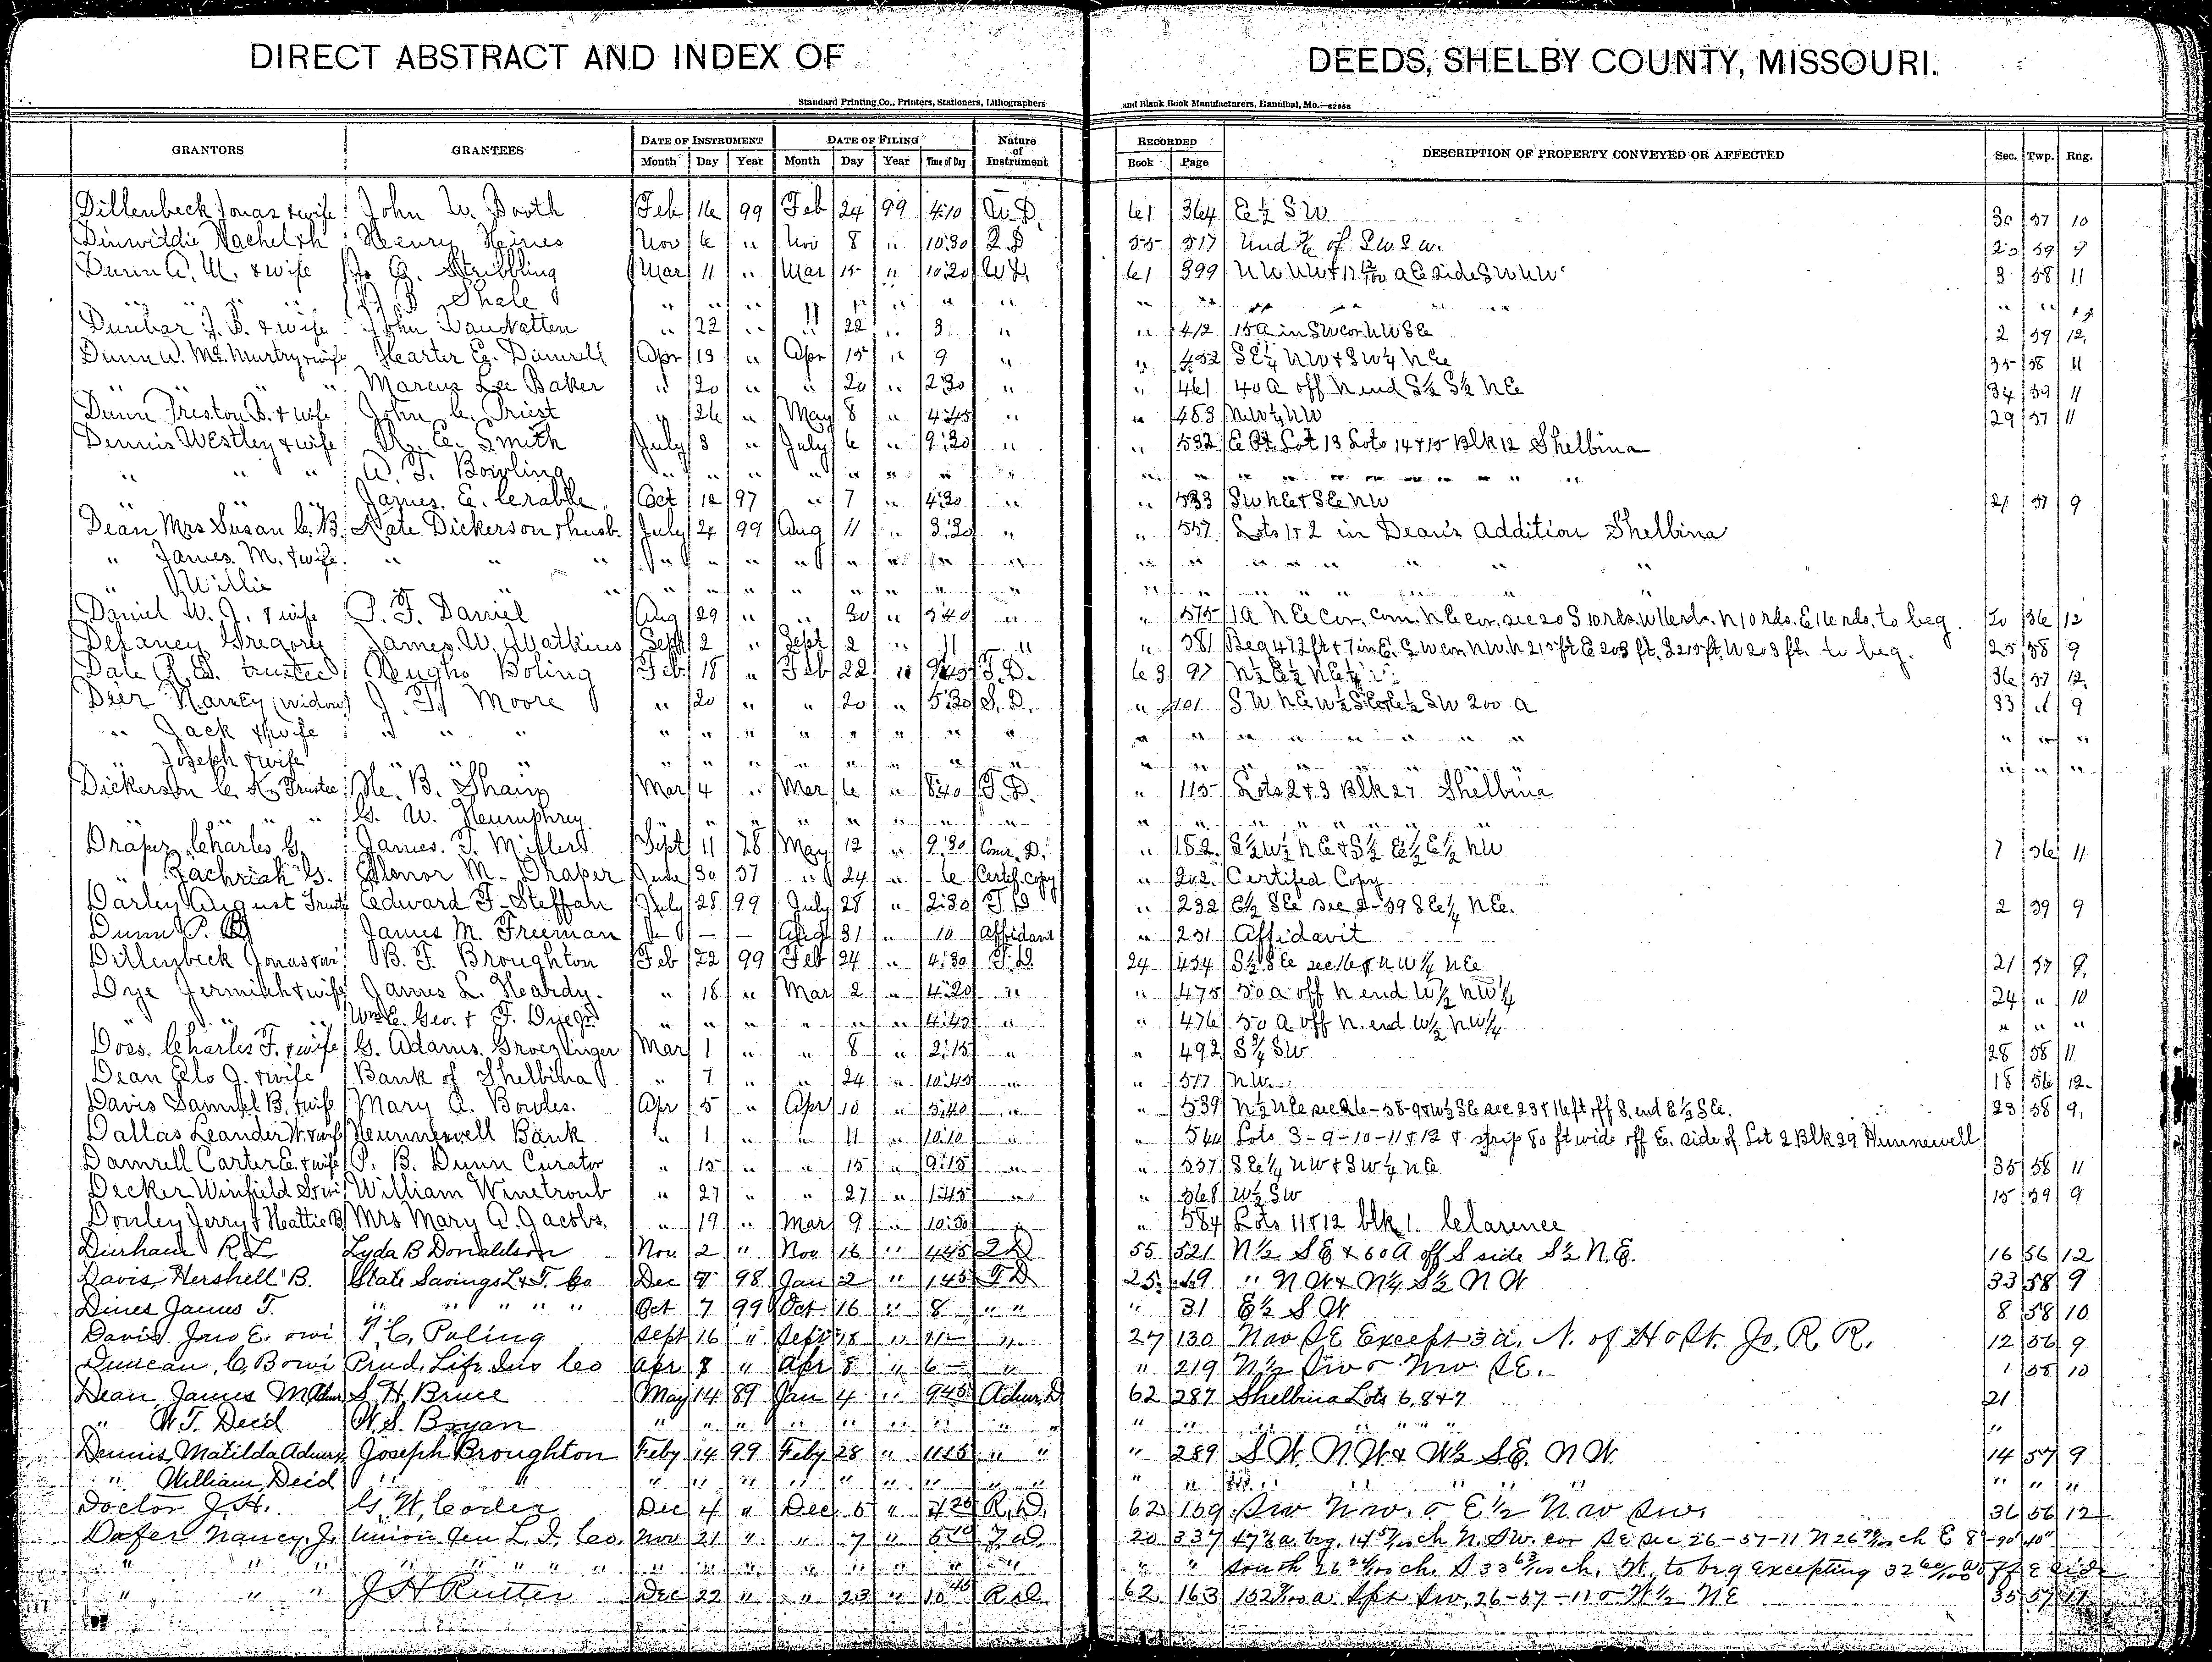 DIRECT ABSTRACT AND INDEX OF DEEDS, SHELBY COUNTY, MISSOURI.
Standard Printing Co., Printers, Stationers, Lithographers and Blank Book Manufacturers, Hannibal, Mo.—82058
GRANTORS GRANTEES DATE OF INSTRUMENT DATE OF FILING Nature of Instrument RECORDED DESCRIPTION OF PROPERTY CONVEYED OR AFFECTED Sec. Twp. Rng.
Month Day Year Month Day Year Time of Day Book Page
Dillenbeck Jonas & wife John W. Booth Feb 16 99 Feb 24 99 4:10 W. D. 61 364 E ½ SW 30 57 10
Dinwiddie Rachel Henry Heines Nov 6 " Nov 8 " 10:30 Q D 55 517 Und of SW SW. 20 59 9
Dunn A. M. & wife Jo G. Stribbling Mar 11 " Mar 15 " 10:20 W D. 61 399 NW NW & E side SW NW 3 58 11
" " " Shale " " " " " " " " " " " " " " " "
Dunbar J. B. & wife John VanNatten " 22 " " 22 " 3 " " 412 15 A in SW cor. NW SE 2 59 12
Dunn W. McMurtry & wife Harter E. Damrell Apr 13 " Apr 15 " 9 " " 452 SE ¼ NW & SW ¼ NE 35 58 11
" " " Marcus Lee Baker " 20 " " 20 " 2:30 " " 461 40 A off N end S½ S½ NE 34 59 11
Dunn Preston B. & wife John C. Priest " 26 " May 8 " 4:45 " " 483 NW ¼ NW 29 57 11
Dennis Westley & wife R. E. Smith July 3 " July 6 " 9:20 " " 532 E Pt. Lot 13 Lots 14 & 15 Blk 12 Shelbina
" " " A. F. Bowling " " " " " " " " " " " " " "
" " James E. Crabbe Oct 12 97 " 7 " 4:30 " " 533 SW NE & SE NW 21 57 9
Dean Mrs Susan C. B. Kate Dickerson & husb. July 24 99 Aug 11 " 3:30 " " 557 Lots 1 & 2 in Dean's Addition Shelbina
" James M. & wife " " " " " " " " " " " " " " " " "
" Willie " " " " " " " " " " "
Daniel W. J. & wife P. F. Daniel Aug 29 " " 30 " 5:40 " " 575 1 A NE Cor. Com. NE cor. sec 20 S 10 rds. W 16 rds. N 10 rds. E 16 rds. to beg. 20 56 12
Delaney Gregory James W. Watkins Sept 2 " Sept 2 " 11 " " 581 Beg 472 ft & 7 in E. SW cor. NW. N 215 ft E 203 ft. S 215 ft. W 203 ft. to beg. 25 58 9
Dale R. D. trustee Hughs Boling Feb 18 " Feb 22 " 9:45 T. D. 63 97 N½ E½ NE¼ 36 57 12
Deer Nancy (widow) J. T. Moore " 20 " " 20 " 5:30 S. D. " 101 SW NE W½ SE & E½ SW 200 a 33 " 9
" Jack & wife " " " " " " " " " " " " " " " " " " " "
" Joseph & wife " " " " " " " " " " " " " " " " " "
Dickerson C. H. Trustee H. B. Shain Mar 4 " Mar 6 " 8:40 T. D. " 115 Lots 2 & 3 Blk 27 Shelbina
" " " G. W. Humphrey " " " " " " " " " " " " " "
Draper Charles G. James T. Millers Sept 11 78 May 12 " 9:30 Comr. D. " 182 S½ W½ NE & S½ E½ E½ NW 7 56 11
" Zachriah G. Elenor M. Draper June 30 37 " 24 " 6 Certif. copy " 202 Certifed Copy
Darley August Truste Edward F. Steffan July 28 99 July 28 " 2:30 T D " 232 E½ SE sec 2-59 SE ¼ NE. 2 59 9
Dunn P. B. James M. Freeman — — — Aug 31 " 10 Affidavit " 251 Affidavit
Dillenbeck Jonas & wi B. F. Broughton Feb 22 99 Feb 24 " 4:30 T. D. 24 454 S½ SE sec 16 & NW ¼ NE 21 57 9
Dye Jermiah & wife James L. Heardy. " 18 " Mar 2 " 4:20 " " 475 50 a off N end W½ NW ¼ 24 " 10
" " " Wm E. Geo. & F. Dye " " " " " " 4:40 " " 476 50 A off N. end W½ NW ¼ " " "
Doss. Charles F. & wife G. Adams Groezlinger Mar 1 " " 8 " 2:15 " " 492 S ¾ SW 28 58 11
Dean Elo J. & wife Bank of Shelbina " 7 " " 24 " 10:45 " " 517 NW 18 56 12
Davis Samuel B. & wife Mary A. Bowles. Apr 5 " Apr 10 " 3:40 " " 539 N½ NE sec 26-58-9 & W½ SE sec 23 & 16 ft off S. end E½ SE. 23 58 9
Dallas Leander W. & wife Hunnewell Bank " 1 " " 11 " 10:10 " " 544 Lots 3-9-10-11 & 12 & strip 80 ft wide off E. side of Lot 2 Blk 29 Hunnewell
Damrell Carter E. & wife P. B. Dunn Curator " 15 " " 15 " 9:15 " " 557 SE ¼ NW & SW ¼ NE 35 58 11
Decker Winfield S & wi William Winetroub " 27 " " 27 " 1:45 " " 568 W½ SW 15 59 9
Donley Jerry & Hattie B Mrs Mary A. Jacobs. " 19 " Mar 9 " 10:30 " " 584 Lots 11 & 12 blk 1. Clarence
Durham R. L. Lyda B Donaldson Nov 2 " Nov 16 " 4:45 Q D 55 521 N½ SE & 60 A off S side S½ N.E. 16 56 12
Davis, Hershell B. State Savings L & T. Co Dec 9 98 Jan 2 " 1:45 T D 25 19 " NW & N¼ S½ NW 33 58 9
Dines James T. " " " " " Oct 7 99 Oct 16 " 8 " " " 31 E½ SW 8 58 10
Davis Jno E. owi T. C. Poling Sept 16 " Sept 18 " 2 " 27 130 Nw SE Except 3 a. N. of H & St. Jo. R. R. 12 56 9
Duncan, C. B owi Prud. Life Ins Co Apr 8 " Apr 8 " 6 " " 219 N½ Sw & Nw SE. 1 58 10
Dean James M Admr S. H. Bruce May 14 89 Jan 4 " 9:45 Admr. D 62 287 Shelbina Lots 6, 8 & 7 21
" W. T. Dec'd W. S. Bryan " " " " " " " " " " " " " " "
Dennis, Matilda Admrx Joseph Broughton Feby 14 99 Feby 28 " 11:15 " " " 289 S.W. N.W. & W½ S.E. N.W. 14 57 9
" William, Dec'd " " " " " " " " " " " " " " " "
Doctor J. H. G. W. Corder Dec 4 " Dec 5 " 7:20 R. D. 62 159 Sw Nw. & E½ Nw Sw. 36 56 12
Dofer Nancy, J. Union Cen L. I. Co. Nov 21 " " 7 " T. D. 20 337 ch N. SW. cor Se Sec 26-57-11 N 26 ch E
" " " " " " " " " " " " " " " " South 26 ch. S 33 ch. W. to beg Excepting 32 off E side
" " " J H Rutter Dec 22 " " 23 " R D. 62 163 Sw, 26-57-11 & W½ NE 35 57 11